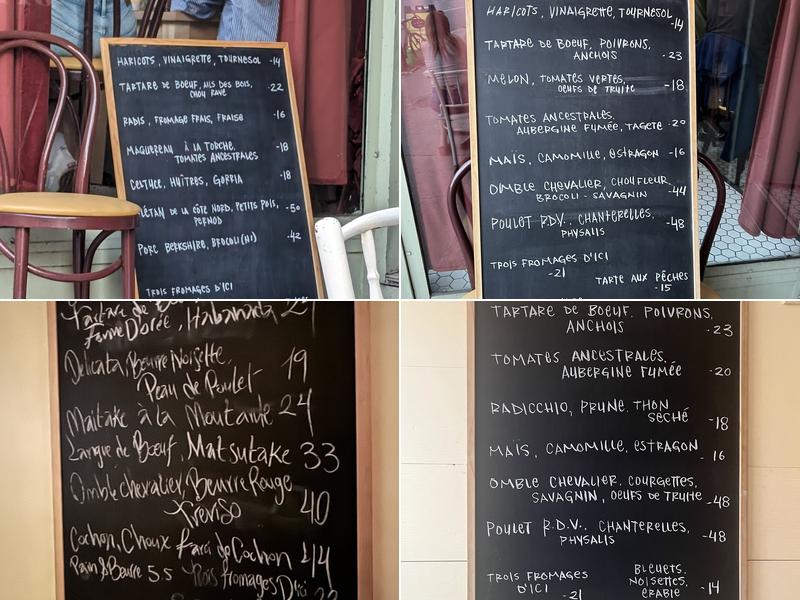 HARICOTS, VINAIGRETTE, TOURNESOL -14
TARTARE DE BOEUF, AILS DES BOIS, -22
CHOU RAVE
RADIS, FROMAGE FRAIS, FRAISE -16
MAQUEREAU À LA TORCHE, -18
TOMATES ANCESTRALES
CELTUCE, HUÎTRES, GORRIA -18
FLÉTAN DE LA CÔTE NORD, PETITS POIS, -50
PERNOD
PORC BERKSHIRE, BROCOLI(NI) -42
TROIS FROMAGES D'ICI
HARICOTS, VINAIGRETTE, TOURNESOL
-14
TARTARE DE BOEUF, POIVRONS,
ANCHOIS -23
MELON, TOMATES VERTES, -18
OEUFS DE TRUITE
TOMATES ANCESTRALES,
AUBERGINE FUMÉE, TAGETE -20
MAÏS, CAMOMILLE, ESTRAGON -16
OMBLE CHEVALIER, CHOUFLEUR,
BROCOLI - SAVAGNIN -44
POULET R.D.V., CHANTERELLES, -48
PHYSALIS
TROIS FROMAGES D'ICI
-21
TARTE AUX PÊCHES
-15
Tartare de
Dorée, Habanada 21
Delicata, Beurre Noisette, 19
Peau de Poulet
Maitake à la Moutarde 24
Langue de Bœuf, Matsutake 33
Omble chevalier, Beurre Rouge
Treviso 40
Cochon, Choux Farci de Cochon 44
Pain & Beurre 5.5
Trois fromages D'ici
TARTARE DE BOEUF, POIVRONS,
ANCHOIS -23
TOMATES ANCESTRALES,
AUBERGINE FUMÉE -20
RADICCHIO, PRUNE, THON
SÉCHÉ -18
MAÏS, CAMOMILLE, ESTRAGON 16
OMBLE CHEVALIER, COURGETTES,
SAVAGNIN, OEUFS DE TRUITE -48
POULET R.D.V., CHANTERELLES, -48
PHYSALIS
TROIS FROMAGES
D'ICI
-21
BLEUETS,
NOISETTES,
ÉRABLE -14